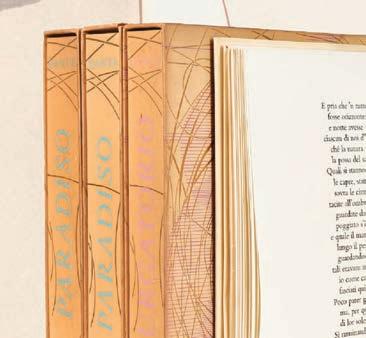 DANTE
PARADISO
DANTE
PARADISO
PURGATORIO
E pria che 'n tutte
fosse orizzonte
e notte avesse
ciascun di noi d'
ché la natura
la possa del sa
Quali si stanno
le capre, state
sovra le cime
tacite all'ombra
guardate da
poggiato s'è
e quale il man
lungo il pe
guardando
tali eravam
io come ca
fasciati qui
Poco parer p
ma, per qu
di lor solo
Sì ruminand